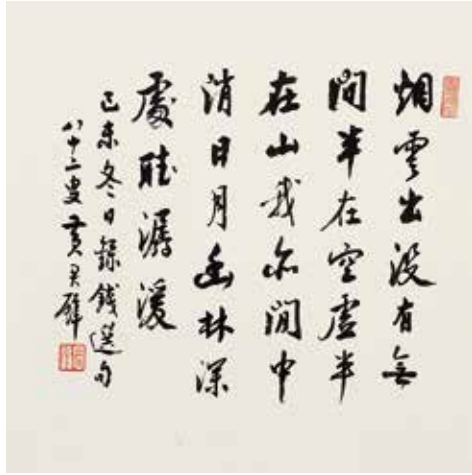 烟雲出没有無
間半在空虚半
在山我亦閒中
消日月幽林深
處聽潺湲
己未冬日錄錢選句
八十二叟黄君璧